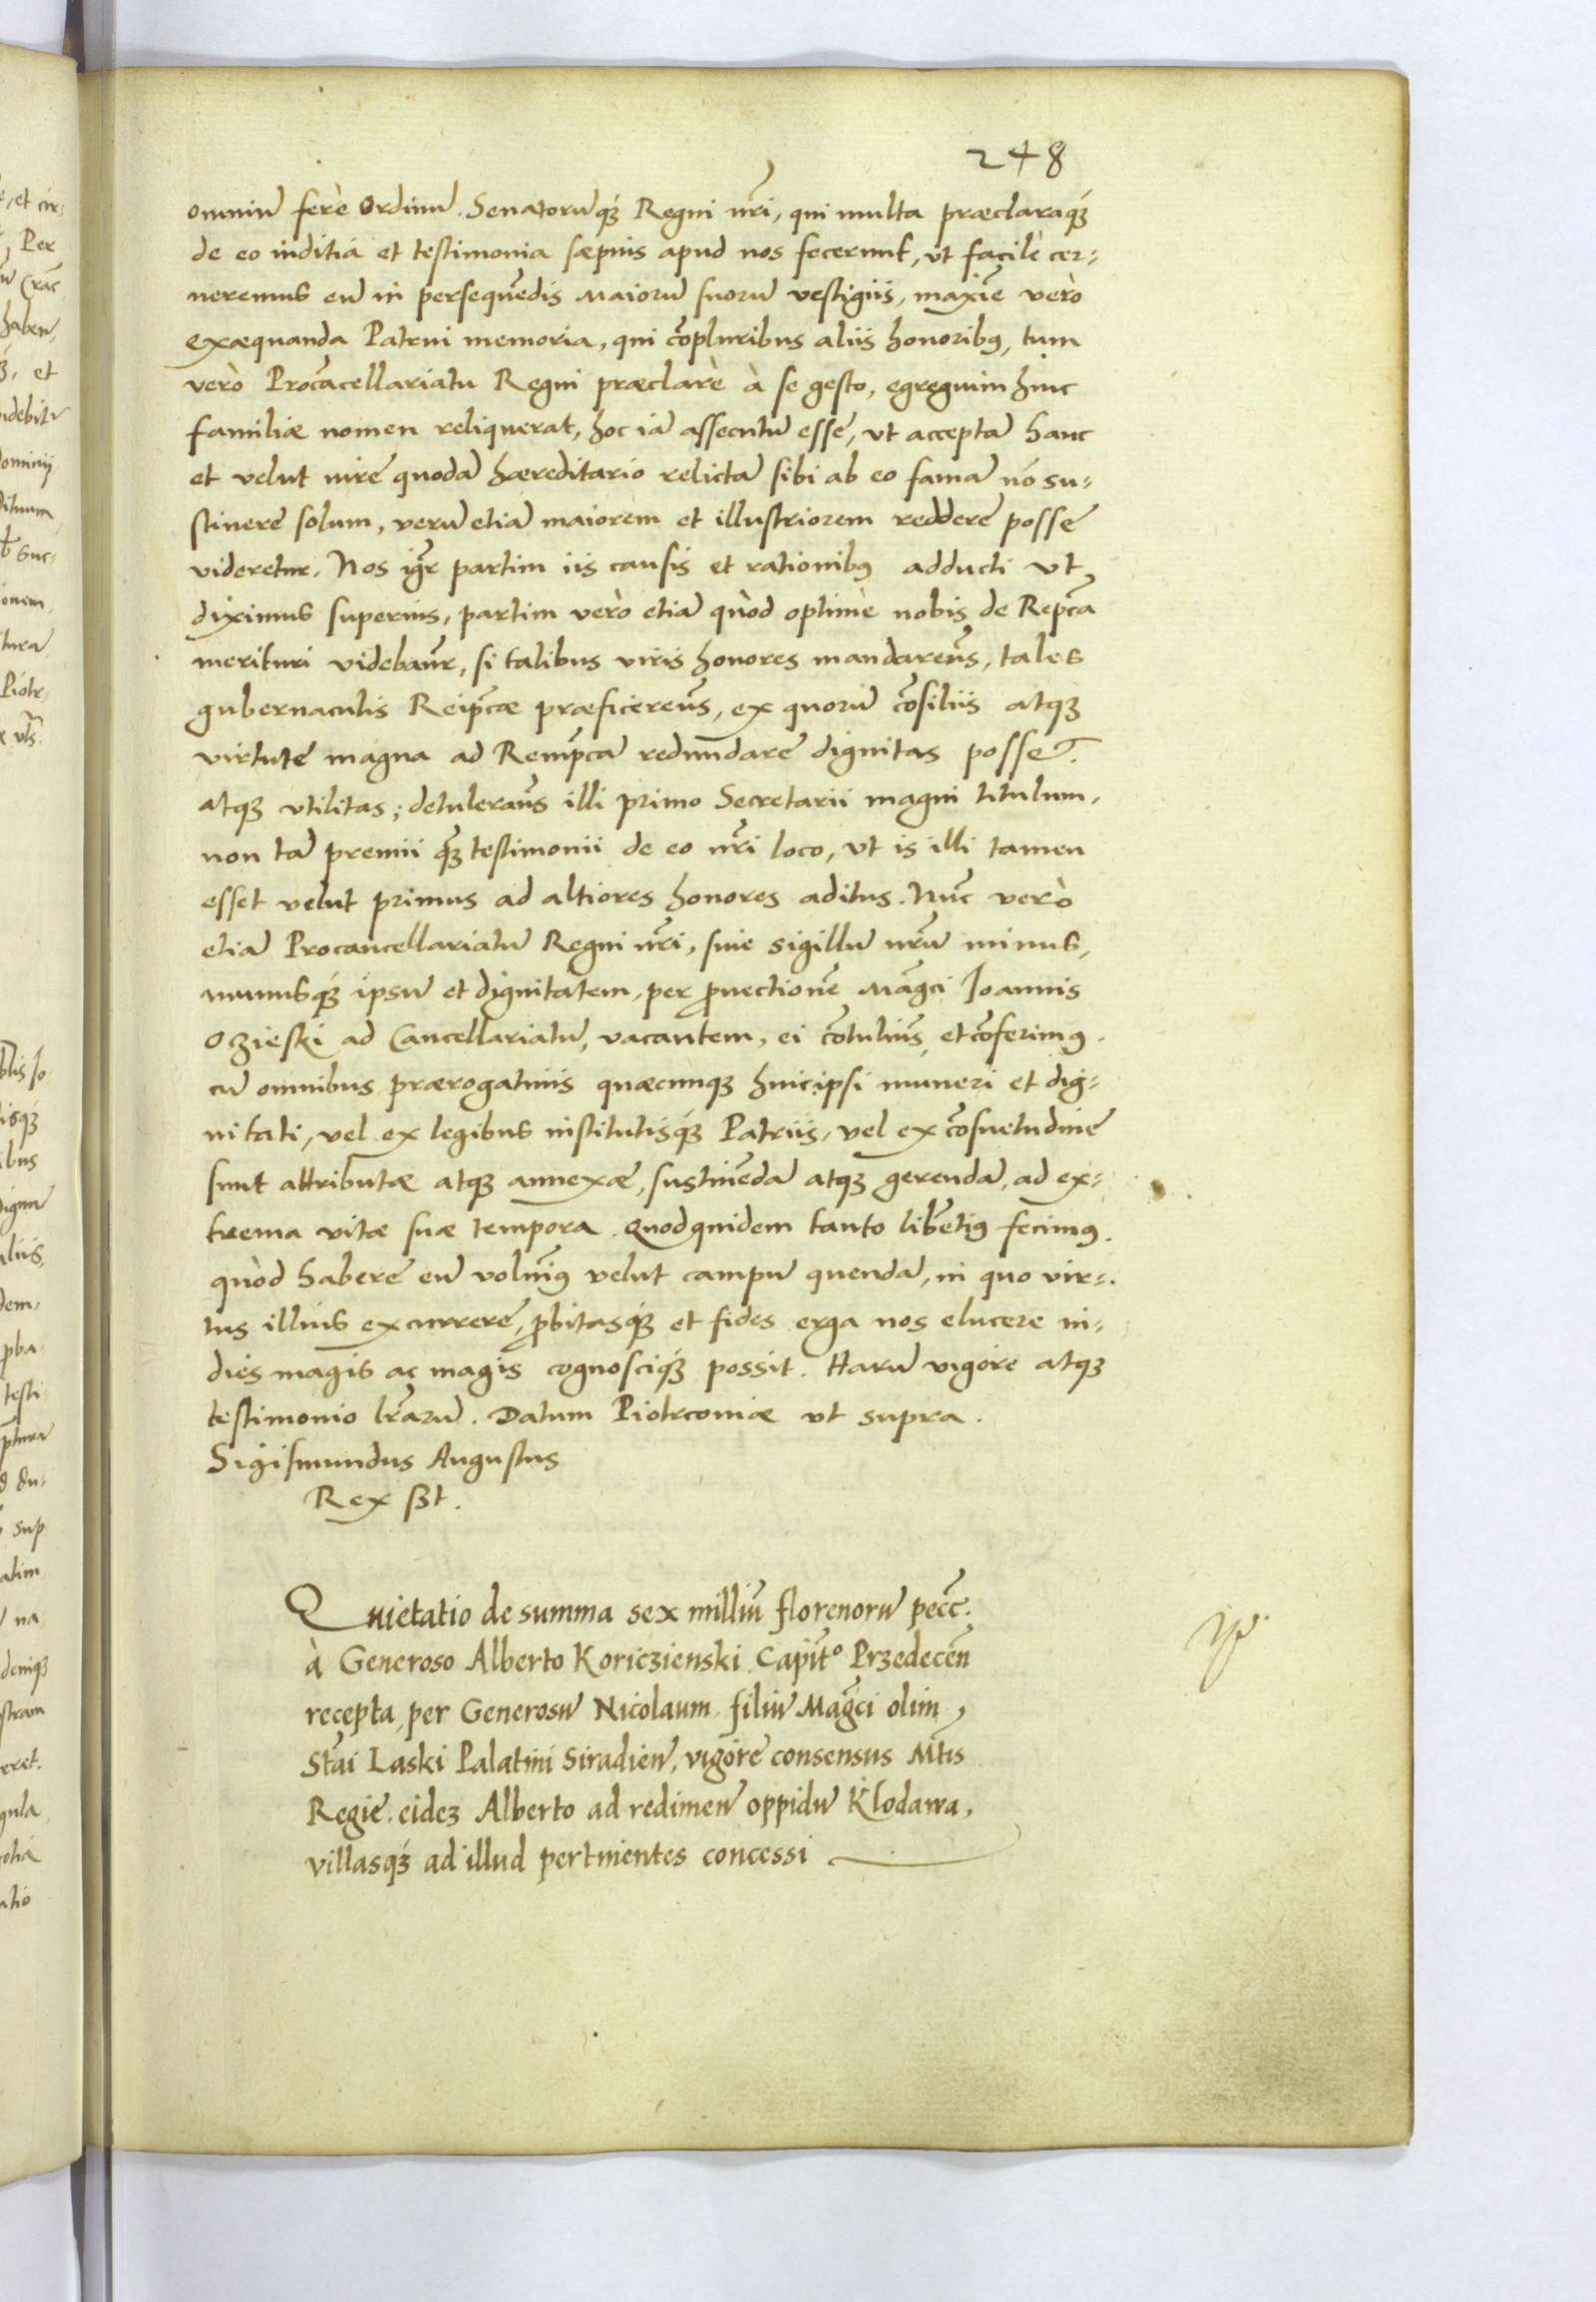 248
omniū ferè Ordinū Senatorūq́ꝫ Regni nr̃i, qui multa præclaraq́ꝫ
de eo inditia et testimonia sæpius apud nos fecerunt, vt facilè cer-
neremus eū in persequēdis Maiorū suorū vestigiis, maxiē verò
exæquanda Patrui memoria, qui cōpluribus aliis honoribꝰ, tum
verò Procācellariatu Regni præclarè à se gesto, egregium huic
familiæ nomen reliquerat, hoc iā assecutū esse, vt acceptā hanc
et velut iure quodā hæreditario relictā sibi ab eo famā nō su-
stinere solum, verū etiā maiorem et illustriorem reddere posse
videretur. Nos igr̃ partim iis causis et rationibꝰ adducti vt
diximus superius, partim verò etiā quòd optimè nobis de Repcā
merituri videbaūr, si talibus viris honores mandareūs, tales
gubernaculis Reipcæ præficereūs, ex quorū cōsiliis atqꝫ
virtute magna ad Rempcā redundare dignitas posset
atqꝫ vtilitas; detuleraūs illi primo Secretarii magni titulum,
non tā premii q̃ꝫ testimonii de eo nr̃i loco, vt is illi tamen
esset velut primus ad altiores honores aditus. Nūc verò
etiā Procancellariatū Regni nr̃i, siue sigillū nr̃ū minus,
munusq́ꝫ ipsū et dignitatem, per ꝓuectionē Magci Joannis
Oczieski ad Cancellariatū, vacantem, ei cōtuliūs, et cōferimꝰ
cū omnibus prærogatiuis quæcunqꝫ huic ipsi muneri et dig-
nitati, vel ex legibus institutisq́ꝫ Patriis, vel ex cōsuetudine
sunt attributæ atqꝫ annexæ, sustinēdā atqꝫ gerendā, ad ex-
trema vitæ suæ tempora. Quod quidem tanto libētiꝰ fecimꝰ
quòd habere eū voluīꝰ velut campū quendā, in quo vir-
tus illius excurrere, ꝓbitasq́ꝫ et fides erga nos elucere in-
dies magis ac magis cognosciq́ꝫ possit. Harū vigore atqꝫ
testimonio lr̃arū. Datum Piotrcouiæ vt supra.
Sigismundus Augustus
Rex sßt.
Quietatio de summa sex milliū florenorū pecc.
à Generoso Alberto Koriczienski Capit̃o Przedecēn
recepta, per Generosū Nicolaum filiū Magci olim
Stãi Laski Palatini Siradien, vigore consensus Mt̃is
Regie eidez Alberto ad redimen̄ oppidū Klodawa,
villasq́ꝫ ad illud pertinentes concessi